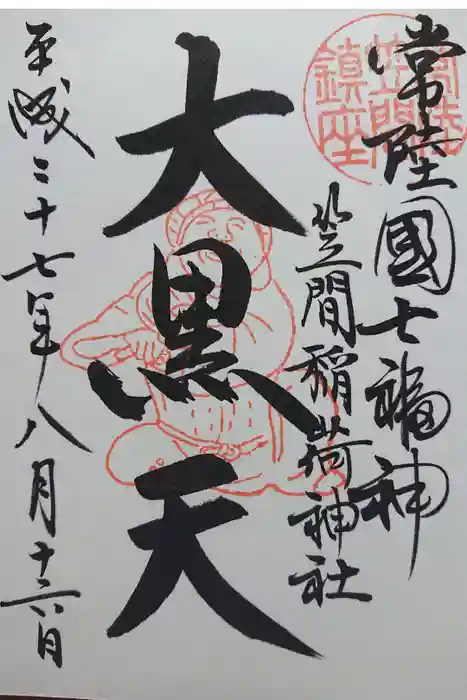 常陸國七福神
笠間稲荷神社
大黒天
平成二十七年八月十六日
常陸
笠間
鎮座